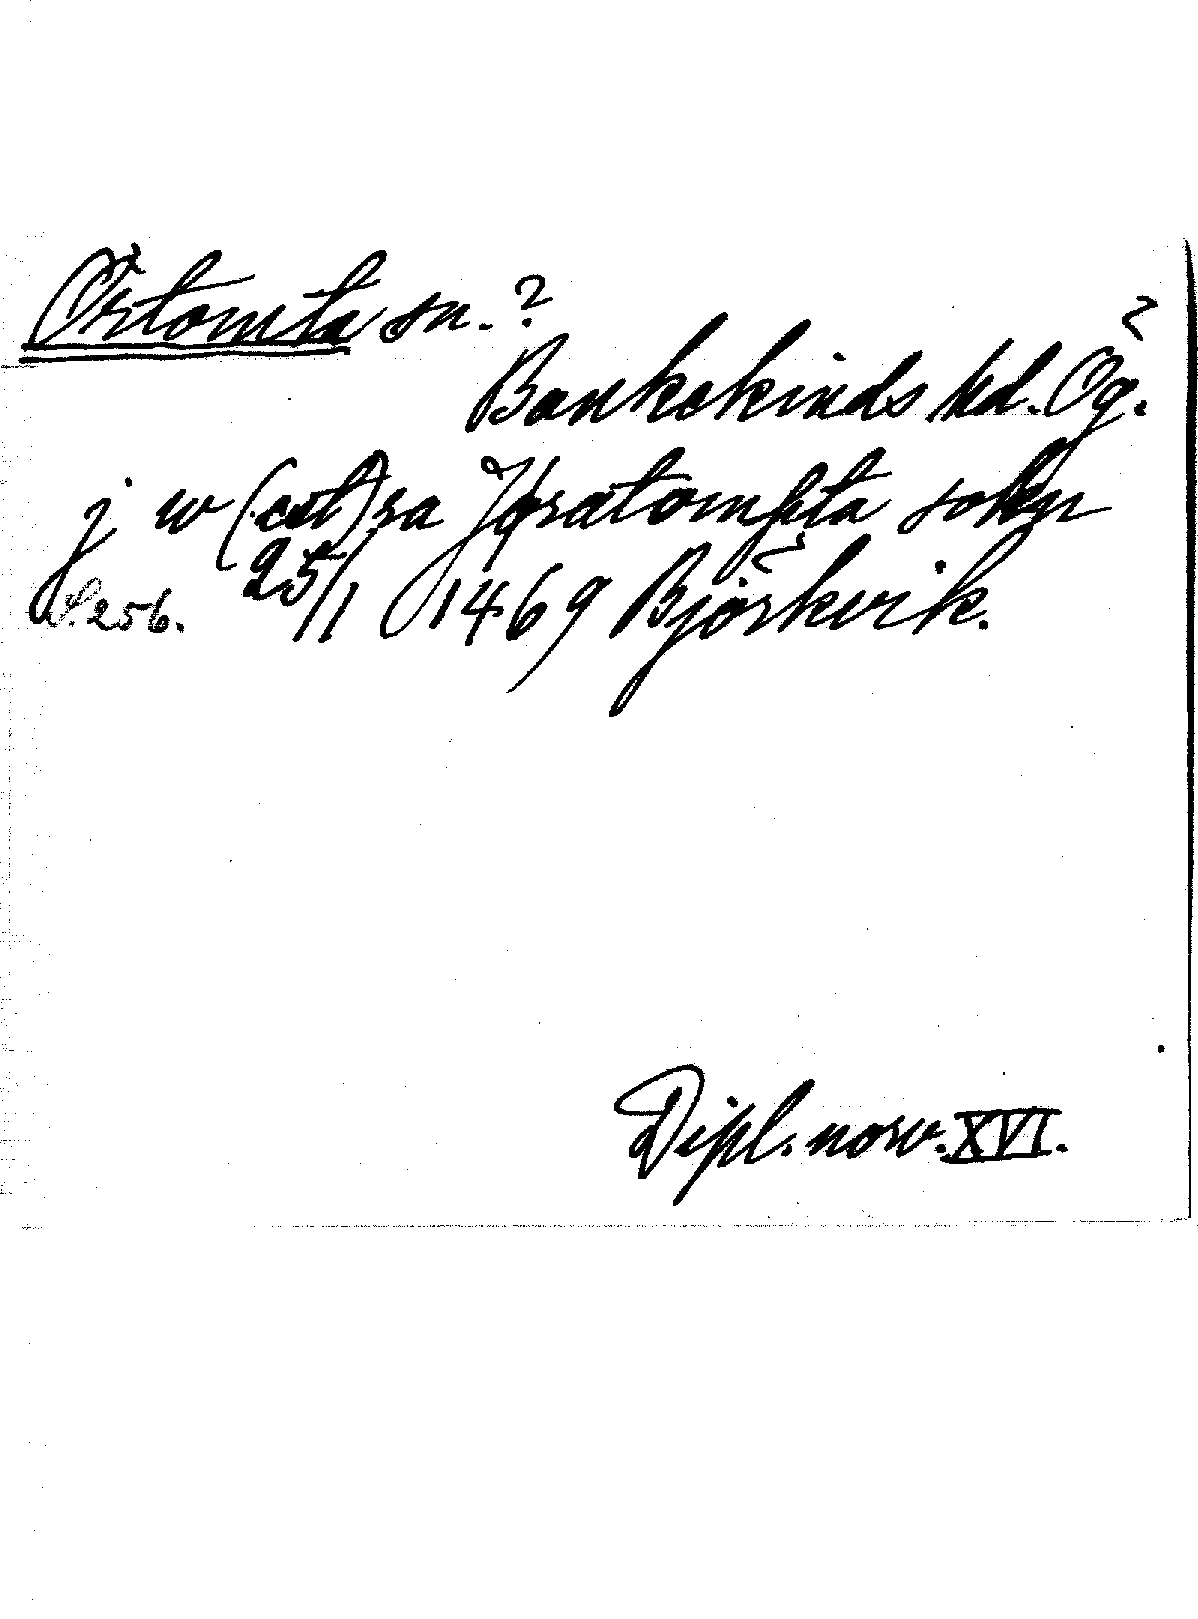 Örtomta sn.?
Bankekinds hd. Ög.
j w (est)ra Høratompta sokn
S. 256. 25/1 1469 Björkvik.
Dipl. norv. XVI.